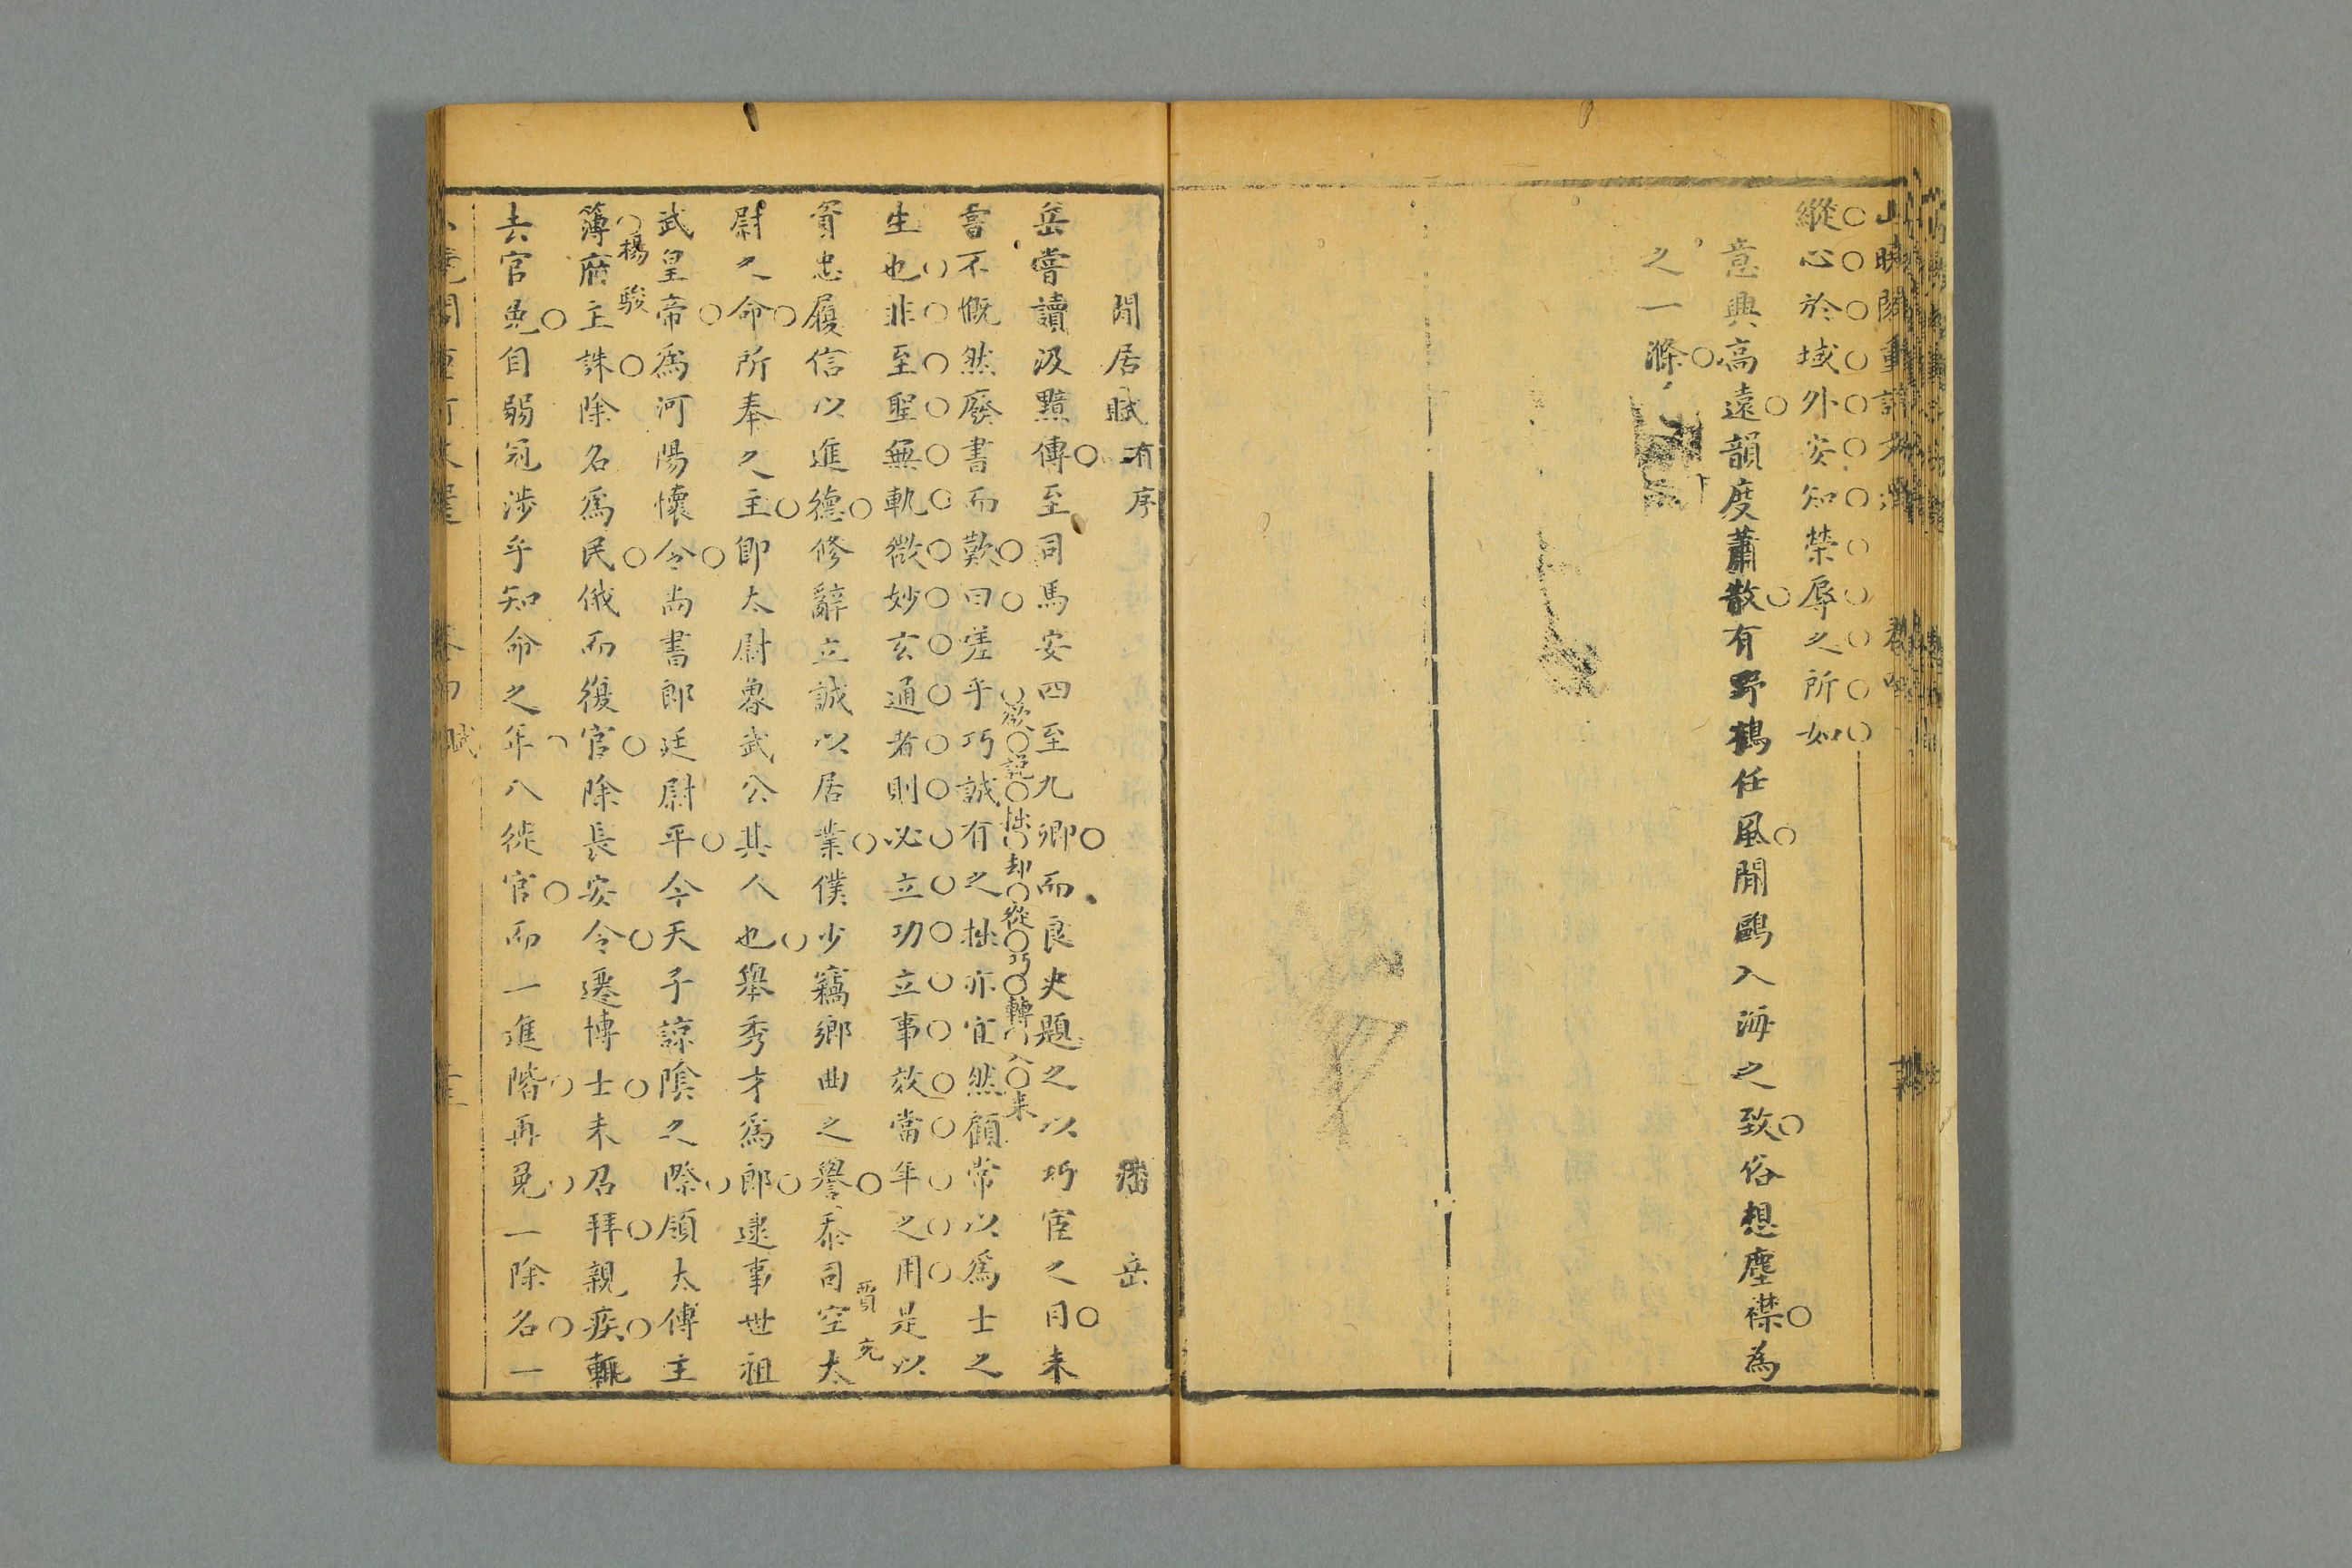 縱心於域外安知榮辱之所如
意興高遠韻度蕭散有野鶴任風閒鷗入海之致俗想塵襟為
之一滌
閒居賦有序 潘岳
岳嘗讀汲黯傳至司馬安四至九卿而良史題之以巧宦之目未
嘗不慨然廢書而歎曰嗟乎巧誠有之拙亦宜然顧常以爲士之
欲說拙却從巧轉入来
生也非至聖無軌微妙玄通者則必立功立事效當年之用是以
資忠履信以進德修辭立誠以居業僕少竊鄉曲之譽忝司空太
賈充
尉之命所奉之主卽太尉魯武公其人也舉秀才爲郎逮事世祖
武皇帝爲河陽懷令尚書郎廷尉平今天子諒陰之際領太傅主
楊駿
簿府主誅除名爲民俄而復官除長安令遷博士未召拜親疾輒
去官免自弱冠涉乎知命之年八徙官而一進階再免一除名一